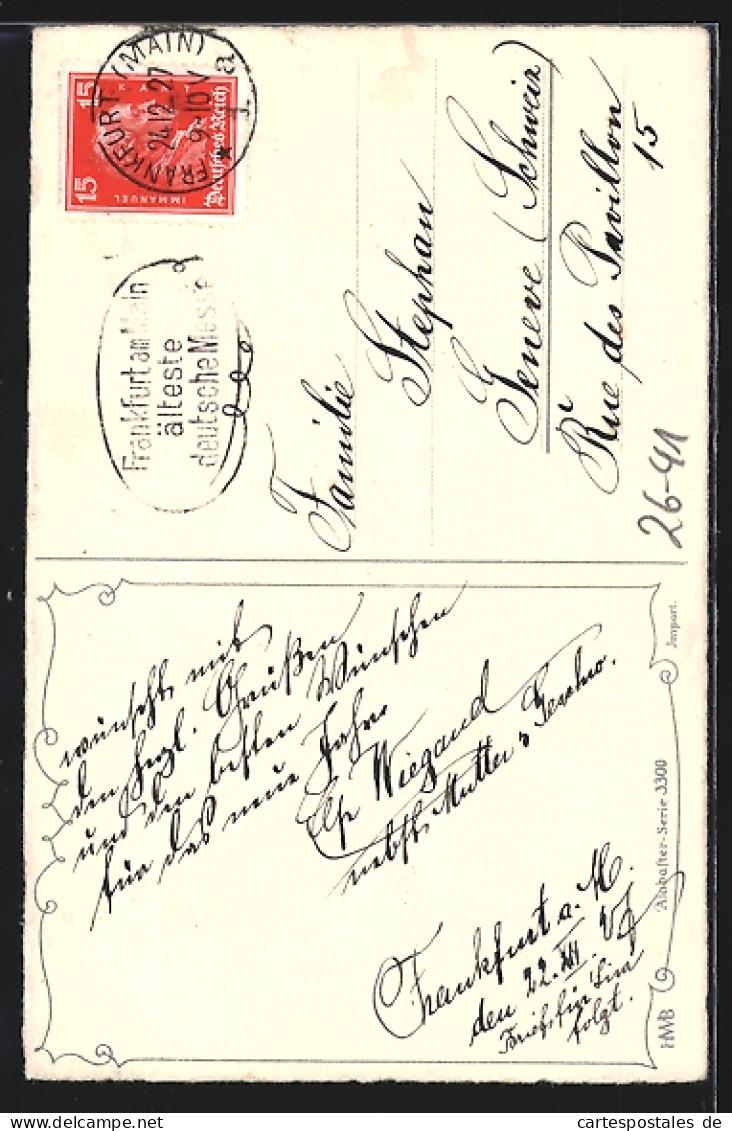 FRANKFURT (MAIN)
24.12.27
9-10V
* 1 a
15 KANT 15
Deutsches Reich
IMMANUEL
Frankfurt am Main
älteste
deutsche Messe
Familie
Stephan
Geneve (Schweiz)
Rue des Pavillon
15
26-41
wünscht mit
den herzl. Grüßen
und den besten Wünschen
für das neue Jahr
Else Wiegand
nebst Mutter u.
Frankfurt a. M.
den 22. XII. 27
Brief für
folgt.
HWB
Alabaster-Serie 3300
Import.
cartespostales de
cartespostales.de